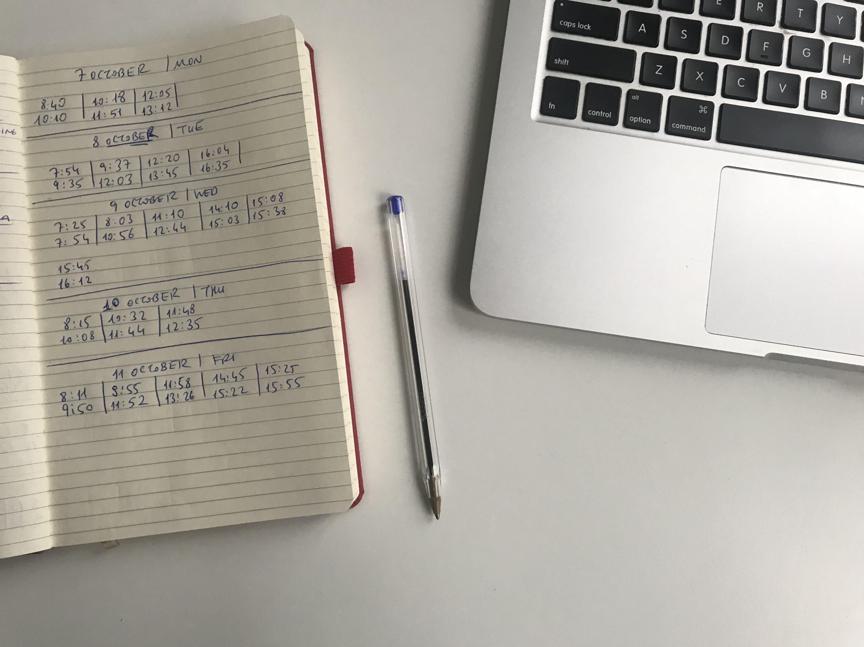 7 OCTOBER | MON
8:40 | 10:18 | 12:05 |
10:10 | 11:51 | 13:12 |
8 OCTOBER | TUE
7:54 | 9:37 | 12:20 | 16:04 |
9:35 | 12:03 | 13:45 | 16:35 |
9 OCTOBER | WED
7:25 | 8:03 | 11:10 | 14:10 | 15:08
7:54 | 10:56 | 12:44 | 15:03 | 15:38
15:45
16:12
10 OCTOBER | THU
8:15 | 10:32 | 11:48
10:08 | 11:44 | 12:35
11 OCTOBER | FRI
8:11 | 9:55 | 11:58 | 14:45 | 15:25
9:50 | 11:52 | 13:26 | 15:22 | 15:55
E R T Y
caps lock A S D F G H
shift Z X C V B N
fn control alt option ⌘ command